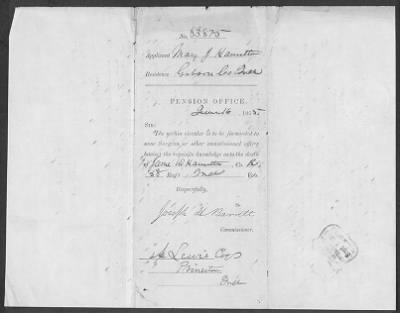 No. 83875
Applicant Mary J. Hamilton
Residence Gibson Co Ind
PENSION OFFICE,
June 16, 1865.
SIR:
The within circular is to be forwarded to
some Surgeon, or other commissioned officer,
having the requisite knowledge as to the death
of Hamilton Co.
58 Reg't Ind Vols.
Respectfully,
Joseph H Barrett
Commissioner.
Lewis
Princeton
Ind